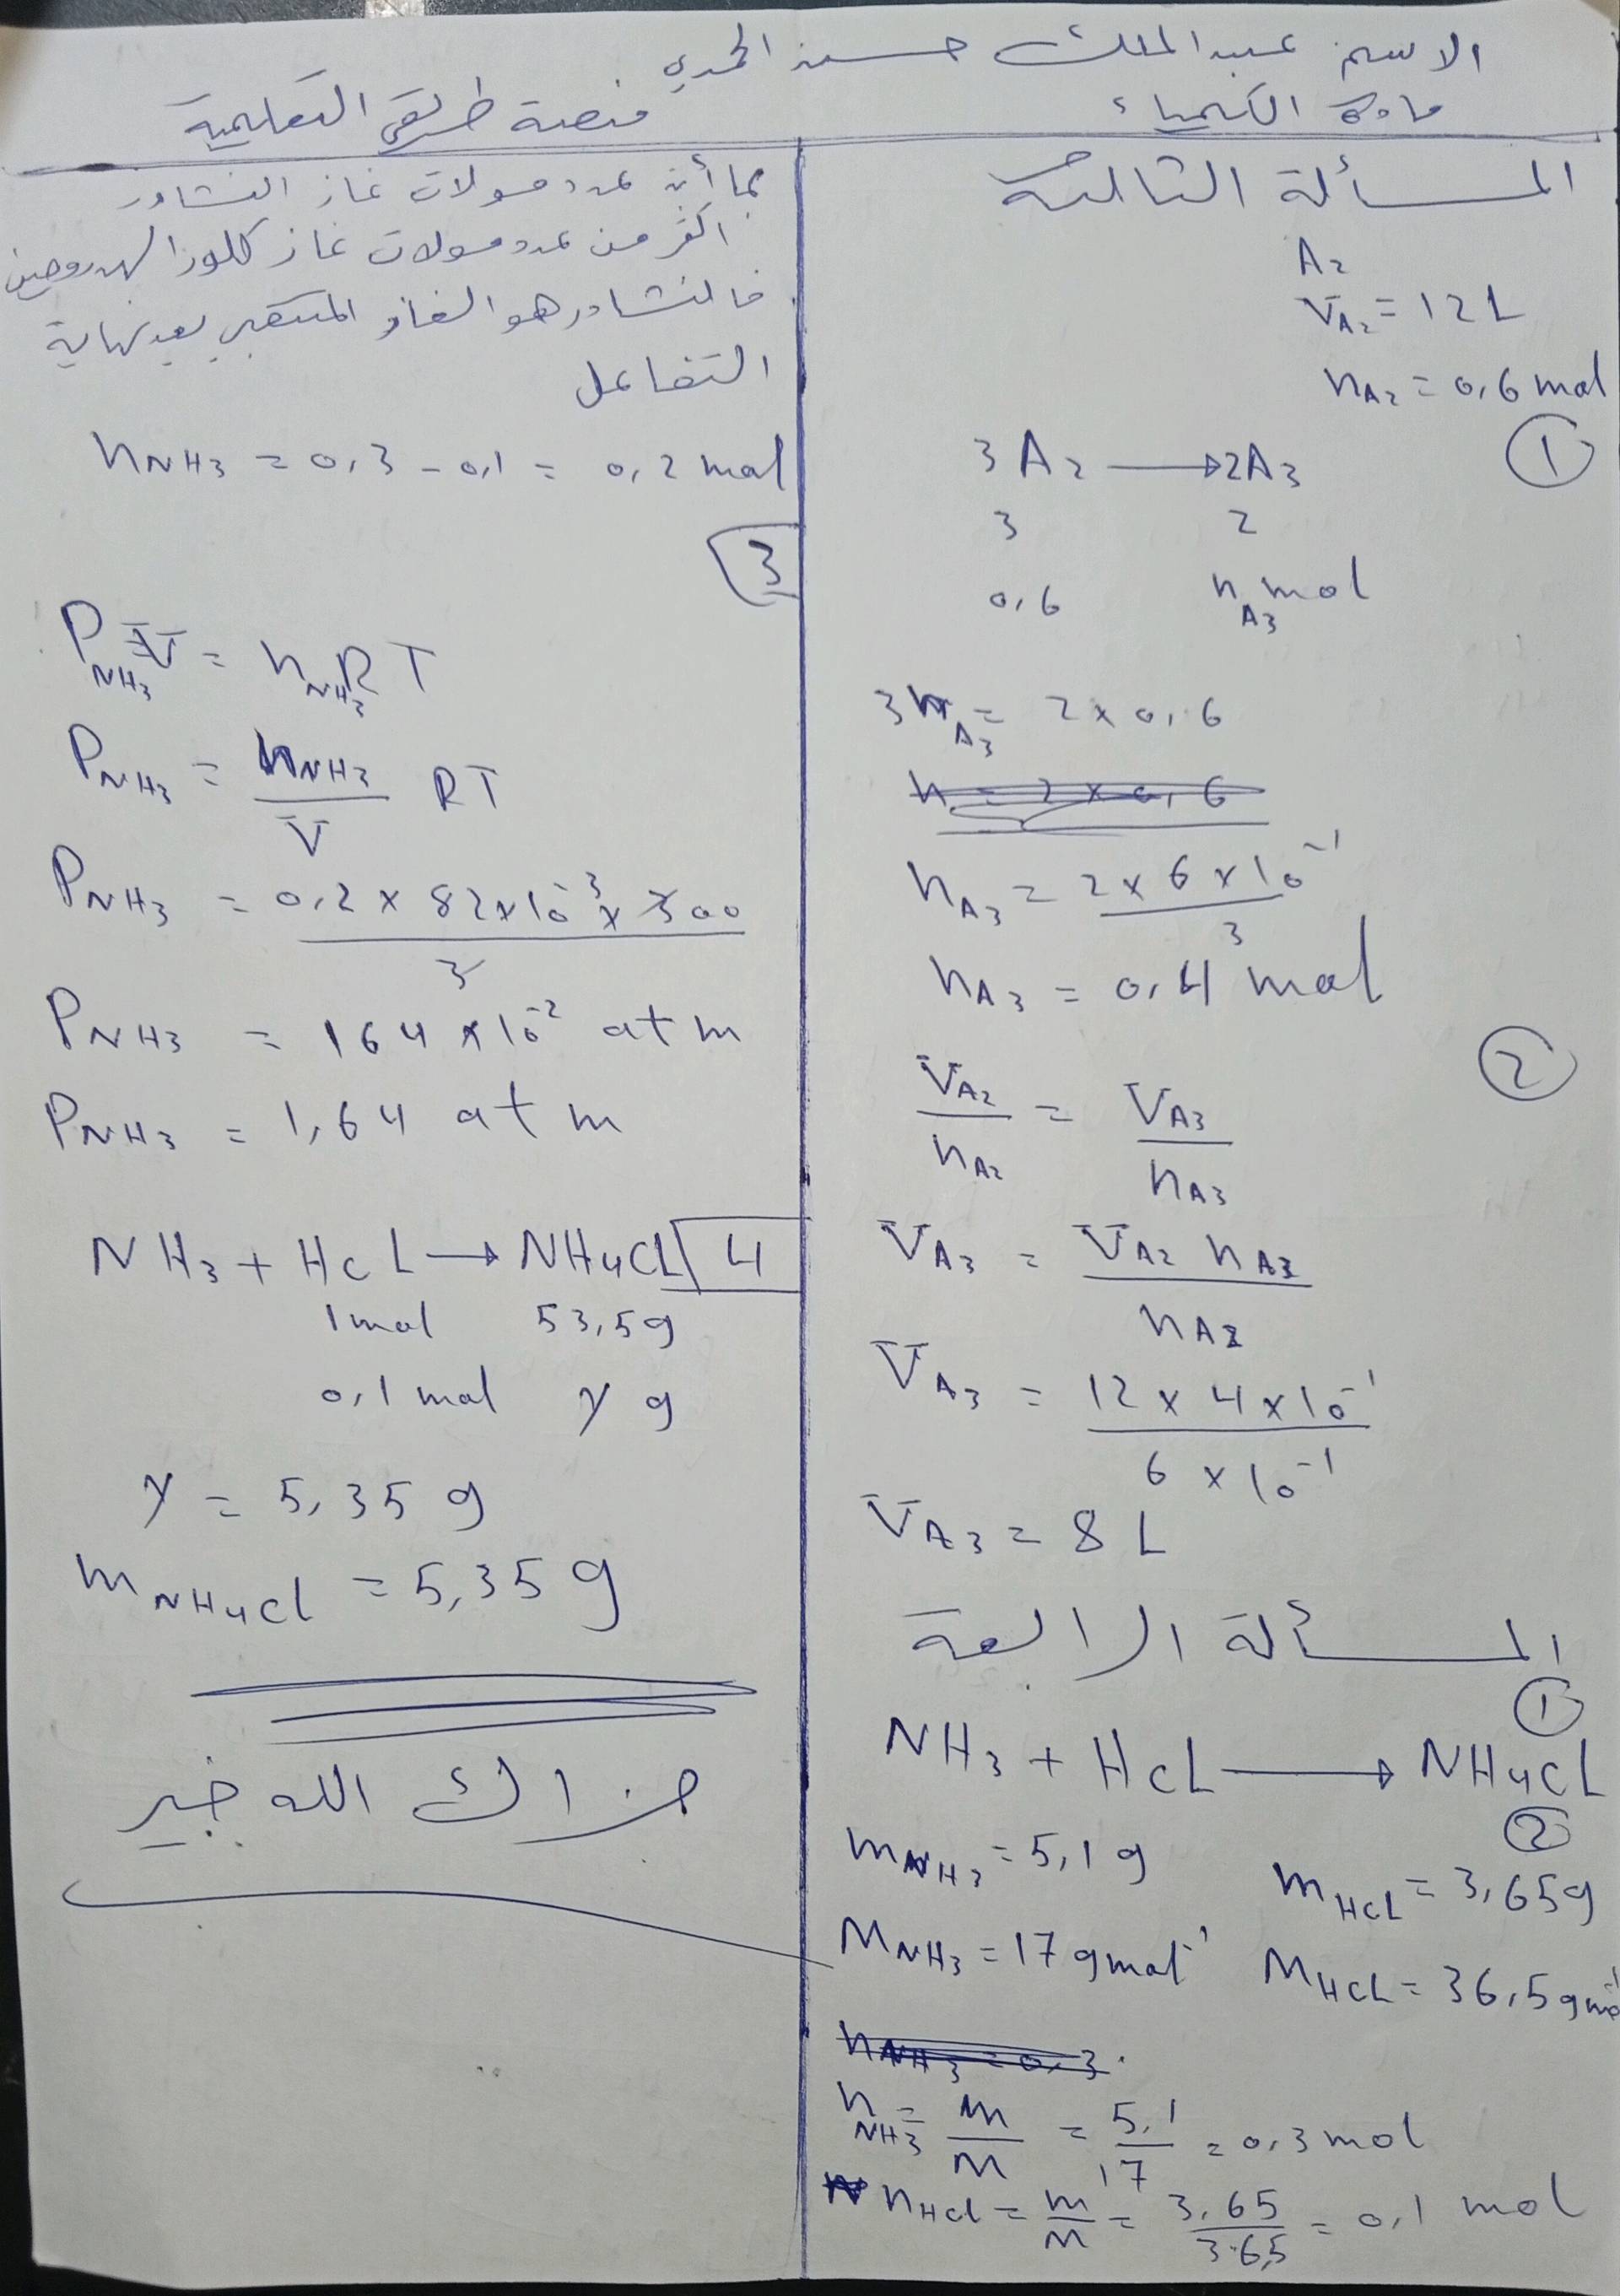 الاسم عبد الملك حسن الحمدي
مادة الكيمياء
منصة طريقي التعليمية
المسألة الثالثة
A₂
V_A₂ = 12 L
n_A₂ = 0,6 mol
①
3 A₂ → 2A₃
3 2
0,6 n_A₃ mol
3 n_A₃ = 2 × 0,6
n = 2 × 0,6
n_A₃ = 2 × 6 × 10⁻¹ / 3
n_A₃ = 0,4 mol
②
V_A₂ / n_A₂ = V_A₃ / n_A₃
V_A₃ = V_A₂ n_A₃ / n_A₂
V_A₃ = 12 × 4 × 10⁻¹ / 6 × 10⁻¹
V_A₃ = 8 L
المسألة الرابعة
①
NH₃ + HCL → NH₄CL
②
m_NH₃ = 5,1 g m_HCL = 3,65g
M_NH₃ = 17 g mol⁻¹ M_HCL = 36,5 g mol⁻¹
n_NH₃ = 0,3
n_NH₃ = m / M = 5,1 / 17 = 0,3 mol
n_HCl = m / M = 3,65 / 36,5 = 0,1 mol
بما أن عدد مولات غاز النشادر
اكثر من عدد مولات غاز كلور الهدروجين
فالنشادر هو الغاز المتبقي بعد نهاية
التفاعل
n_NH₃ = 0,3 - 0,1 = 0,2 mol
3
P_NH₃ V = n_NH₃ R T
P_NH₃ = n_NH₃ / V RT
P_NH₃ = 0,2 × 82×10⁻³ × 300 / 3
P_NH₃ = 164 × 10⁻² atm
P_NH₃ = 1,64 atm
4
NH₃ + HCL → NH₄CL
1mol 53,5g
0,1 mol y g
y = 5,35 g
m_NH₄Cl = 5,35 g
جزاك الله خير